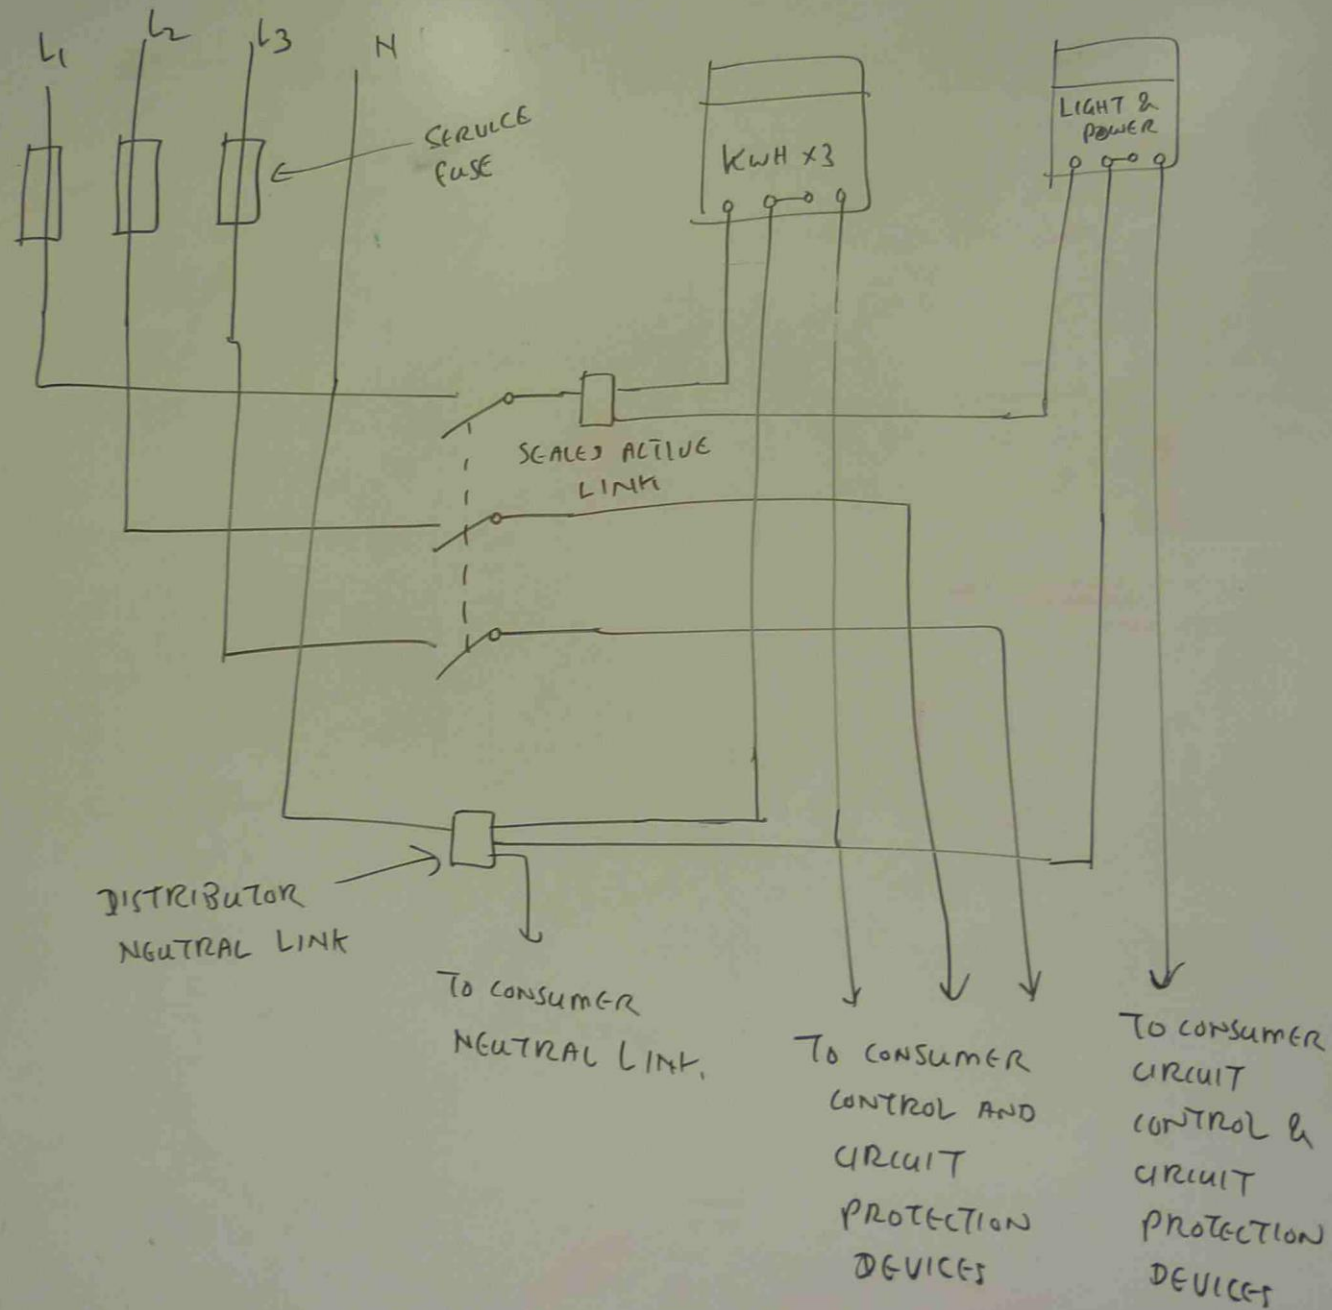 L1
L2
L3
N
SERVICE
FUSE
KWH x3
LIGHT &
POWER
SEALED ACTIVE
LINK
DISTRIBUTOR
NEUTRAL LINK
TO CONSUMER
NEUTRAL LINK.
TO CONSUMER
CONTROL AND
CIRCUIT
PROTECTION
DEVICES
TO CONSUMER
CIRCUIT
CONTROL &
CIRCUIT
PROTECTION
DEVICES